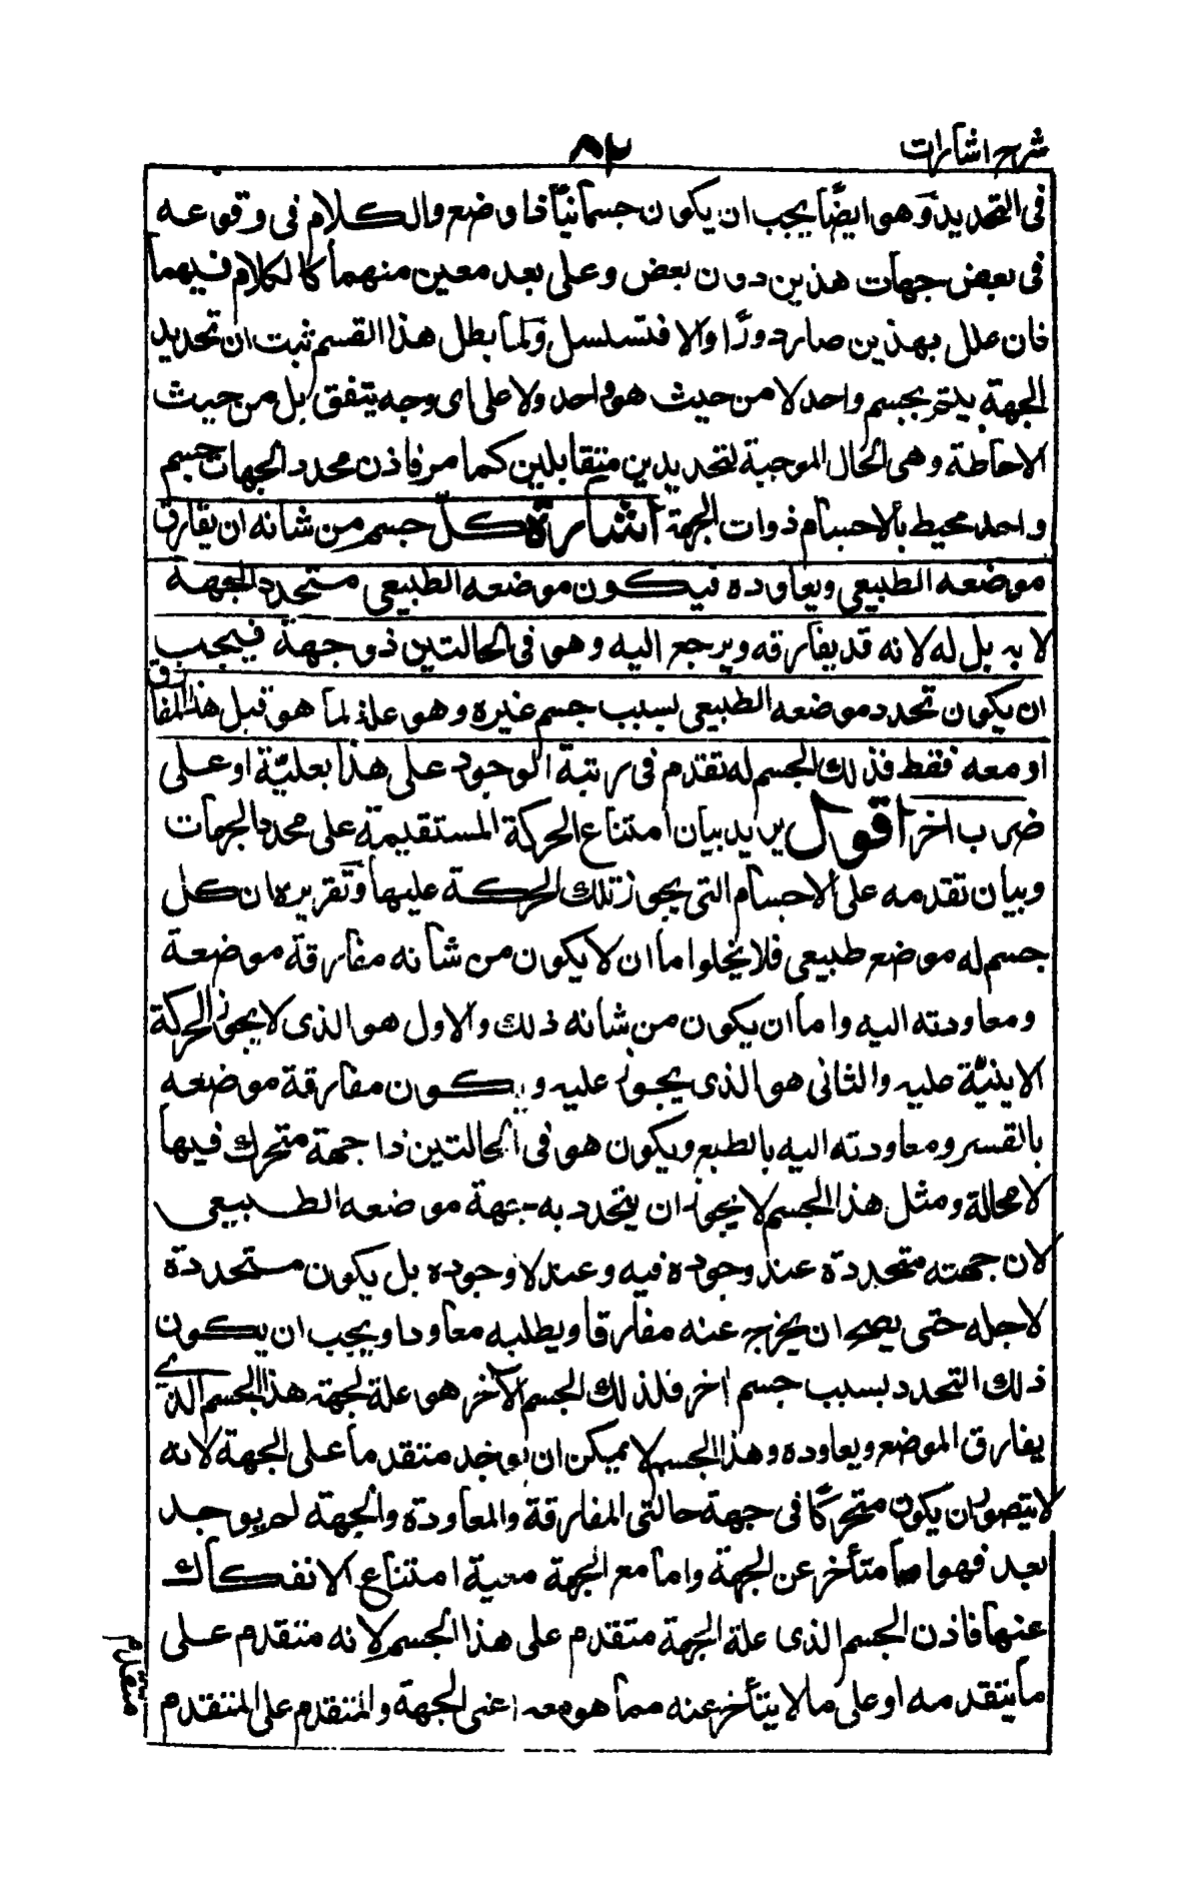 شرح اشارات
٨٢
فى التحديد وهو ايضًا يجب ان يكون جسمانيًا ذا وضع والكلام فى وقوعه
فى بعض جهات هذين دون بعض وعلى بعد معين منهما كالكلام فيهما
فان علل بهذين صار دورًا والا فتسلسل ولما بطل هذا القسم ثبت ان تحديد
الجهة يتم بجسم واحد لا من حيث هو واحد ولا على اى وجه يتفق بل من حيث
الاحاطة وهى الحال الموجبة لتحديدين متقابلين كما مر فاذن محدد الجهات جسم
واحد محيط بالاجسام ذوات الجهة اشارة كلّ جسم من شانه ان يفارق
موضعه الطبيعى ويعاوده فيكون موضعه الطبيعى متحدد الجهة
لا به بل له لانه قد يفارقه ويرجع اليه وهو فى الحالتين ذو جهة فيجب
ان يكون تحدد موضعه الطبيعى بسبب جسم غيره وهو علة لما هو قبل هذا المفارق
او معه فقط فذلك الجسم له تقدم فى رتبة الوجود على هذا بعليّة او على
ضرب اخر اقول يريد بيان امتناع الحركة المستقيمة على محدد الجهات
وبيان تقدمه على الاجسام التى يجوز تلك الحركة عليها وتقريره ان كل
جسم له موضع طبيعى فلا يخلوا ما ان لا يكون من شانه مفارقة موضعة
ومعاودته اليه واما ان يكون من شانه ذلك والاول هو الذى لا يجوز الحركة
الاينيّة عليه والثانى هو الذى يجوز عليه ويكون مفارقة موضعه
بالقسر ومعاودته اليه بالطبع ويكون هو فى الحالتين ذا جهة متحرك فيها
لا محالة ومثل هذا الجسم لا يجوز ان يتحدد به جهة موضعه الطبيعى
لان جهته متحددة عند وجوده فيه وعند لا وجوده بل يكون متحددة
لاجله حتى يصح ان يخرج عنه مفارقا ويطلبه معاودا ويجب ان يكون
ذلك التحدد بسبب جسم اخر فلذلك الجسم الآخر هو علة لجهة هذا الجسم الذى
يفارق الموضع ويعاوده وهذا الجسم لا يمكن ان يوجد متقدما على الجهة لانه
لا يتصور ان يكون متحركًا فى جهة حالتى المفارقة والمعاودة والجهة لم يوجد
بعد فهو اما متأخر عن الجهة واما مع الجهة معية امتناع الانفكاك
عنها فاذن الجسم الذى علة الجهة متقدم على هذا الجسم لانه متقدم على
ما يتقدمه او على ما لا يتأخر عنه مما هو معه اعنى الجهة والمتقدم على المتقدم
متقدم